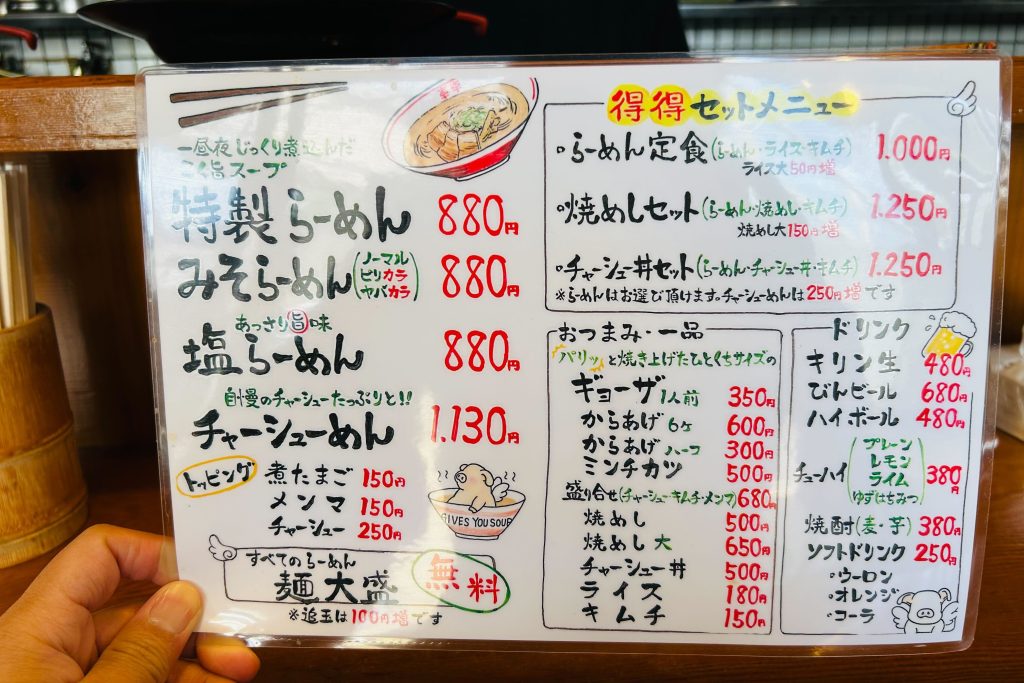 一昼夜じっくり煮込んだ
こく旨スープ
特製らーめん 880円
みそらーめん(ノーマル ピリカラ ヤバカラ) 880円
あっさり旨味
塩らーめん 880円
自慢のチャーシューたっぷりと!!
チャーシューめん 1.130円
トッピング
煮たまご 150円
メンマ 150円
チャーシュー 250円
GIVES YOU SOUP
すべてのらーめん
麺大盛 無料
※追玉は100円増です
得得セットメニュー
・らーめん定食(らーめん・ライス・キムチ) 1.000円
ライス大50円増
・焼めしセット(らーめん・焼めし・キムチ) 1.250円
焼めし大150円増
・チャーシュー丼セット(らーめん・チャーシュー丼・キムチ) 1.250円
※らーめんはお選び頂けます。チャーシューめんは250円増です
おつまみ・一品
パリッと焼き上げたひとくちサイズの
ギョーザ1人前 350円
からあげ6ヶ 600円
からあげハーフ 300円
ミンチカツ 500円
盛り合せ(チャーシュー・キムチ・メンマ) 680円
焼めし 500円
焼めし大 650円
チャーシュー丼 500円
ライス 180円
キムチ 150円
ドリンク
キリン生 480円
びんビール 680円
ハイボール 480円
チューハイ(プレーン レモン ライム ゆずはちみつ) 380円
焼酎(麦・芋) 380円
ソフトドリンク 250円
・ウーロン
・オレンジ
・コーラ